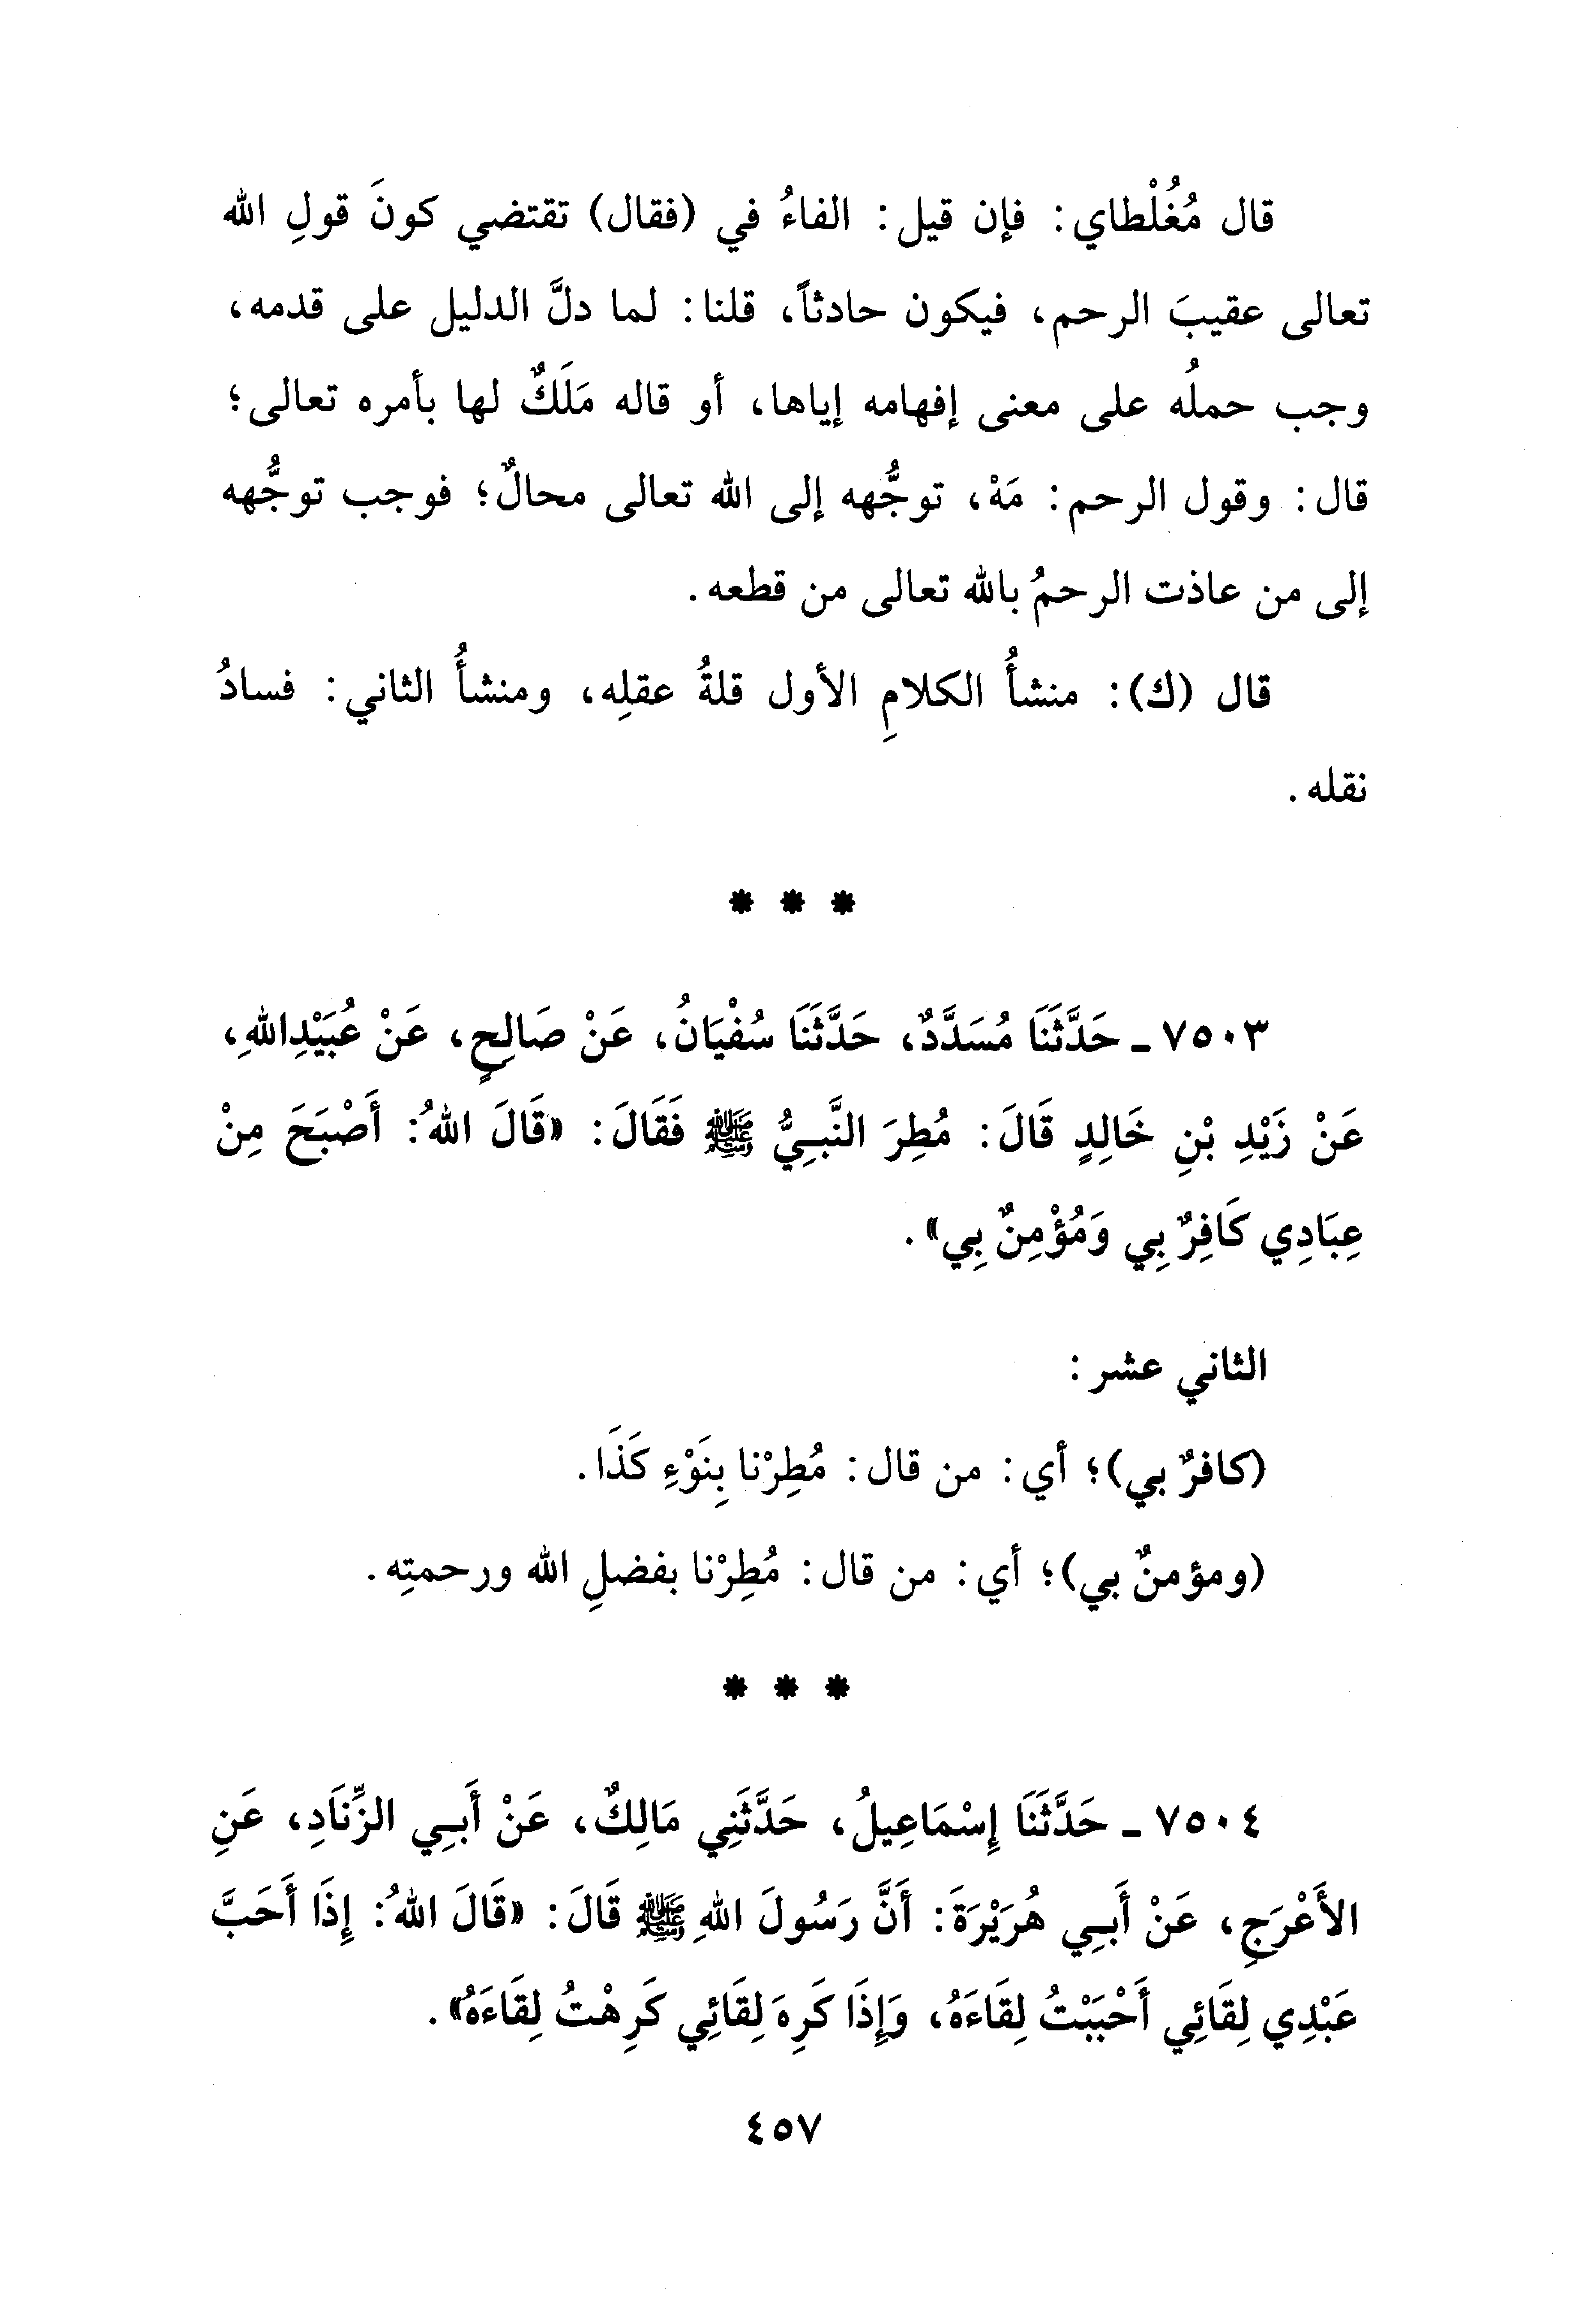 قال مُغُلْطاي: فإن قيل: الفاءُ في (فقال) تقتضي كونَ قولِ الله
تعالى عقيبَ الرحم، فيكون حادثاً، قلنا: لما دلَّ الدليل على قدمه،
وجب حملُه على معنى إفهامه إياها، أو قاله مَلَكٌ لها بأمره تعالى؛
قال: وقول الرحم: مَهْ، توجُّهه إلى الله تعالى محالٌ؛ فوجب توجُّهه
إلى من عاذت الرحمُ بالله تعالى من قطعه.
قال (ك): منشأُ الكلامِ الأول قلةُ عقلِه، ومنشأُ الثاني: فسادُ
نقله.
* * *
٧٥٠٣ ـ حَدَّثَنَا مُسَدَّدٌ، حَدَّثَنَا سُفْيَانُ، عَنْ صَالِحٍ، عَنْ عُبَيْدِاللهِ،
عَنْ زَيْدِ بْنِ خَالِدٍ قَالَ: مُطِرَ النَّبِيُّ ﷺ فَقَالَ: «قَالَ اللهُ: أَصْبَحَ مِنْ
عِبَادِي كَافِرٌ بِي وَمُؤْمِنٌ بِي».
الثاني عشر:
(كافرٌ بي)؛ أي: من قال: مُطِرْنا بِنَوْءِ كَذَا.
(ومؤمنٌ بي)؛ أي: من قال: مُطِرْنا بفضلِ الله ورحمتِه.
* * *
٧٥٠٤ ـ حَدَّثَنَا إِسْمَاعِيلُ، حَدَّثَنِي مَالِكٌ، عَنْ أَبِي الزِّنَادِ، عَنِ
الأَعْرَجِ، عَنْ أَبِي هُرَيْرَةَ: أَنَّ رَسُولَ اللهِ ﷺ قَالَ: «قَالَ اللهُ: إِذَا أَحَبَّ
عَبْدِي لِقَائِي أَحْبَبْتُ لِقَاءَهُ، وَإِذَا كَرِهَ لِقَائِي كَرِهْتُ لِقَاءَهُ».
٤٥٧